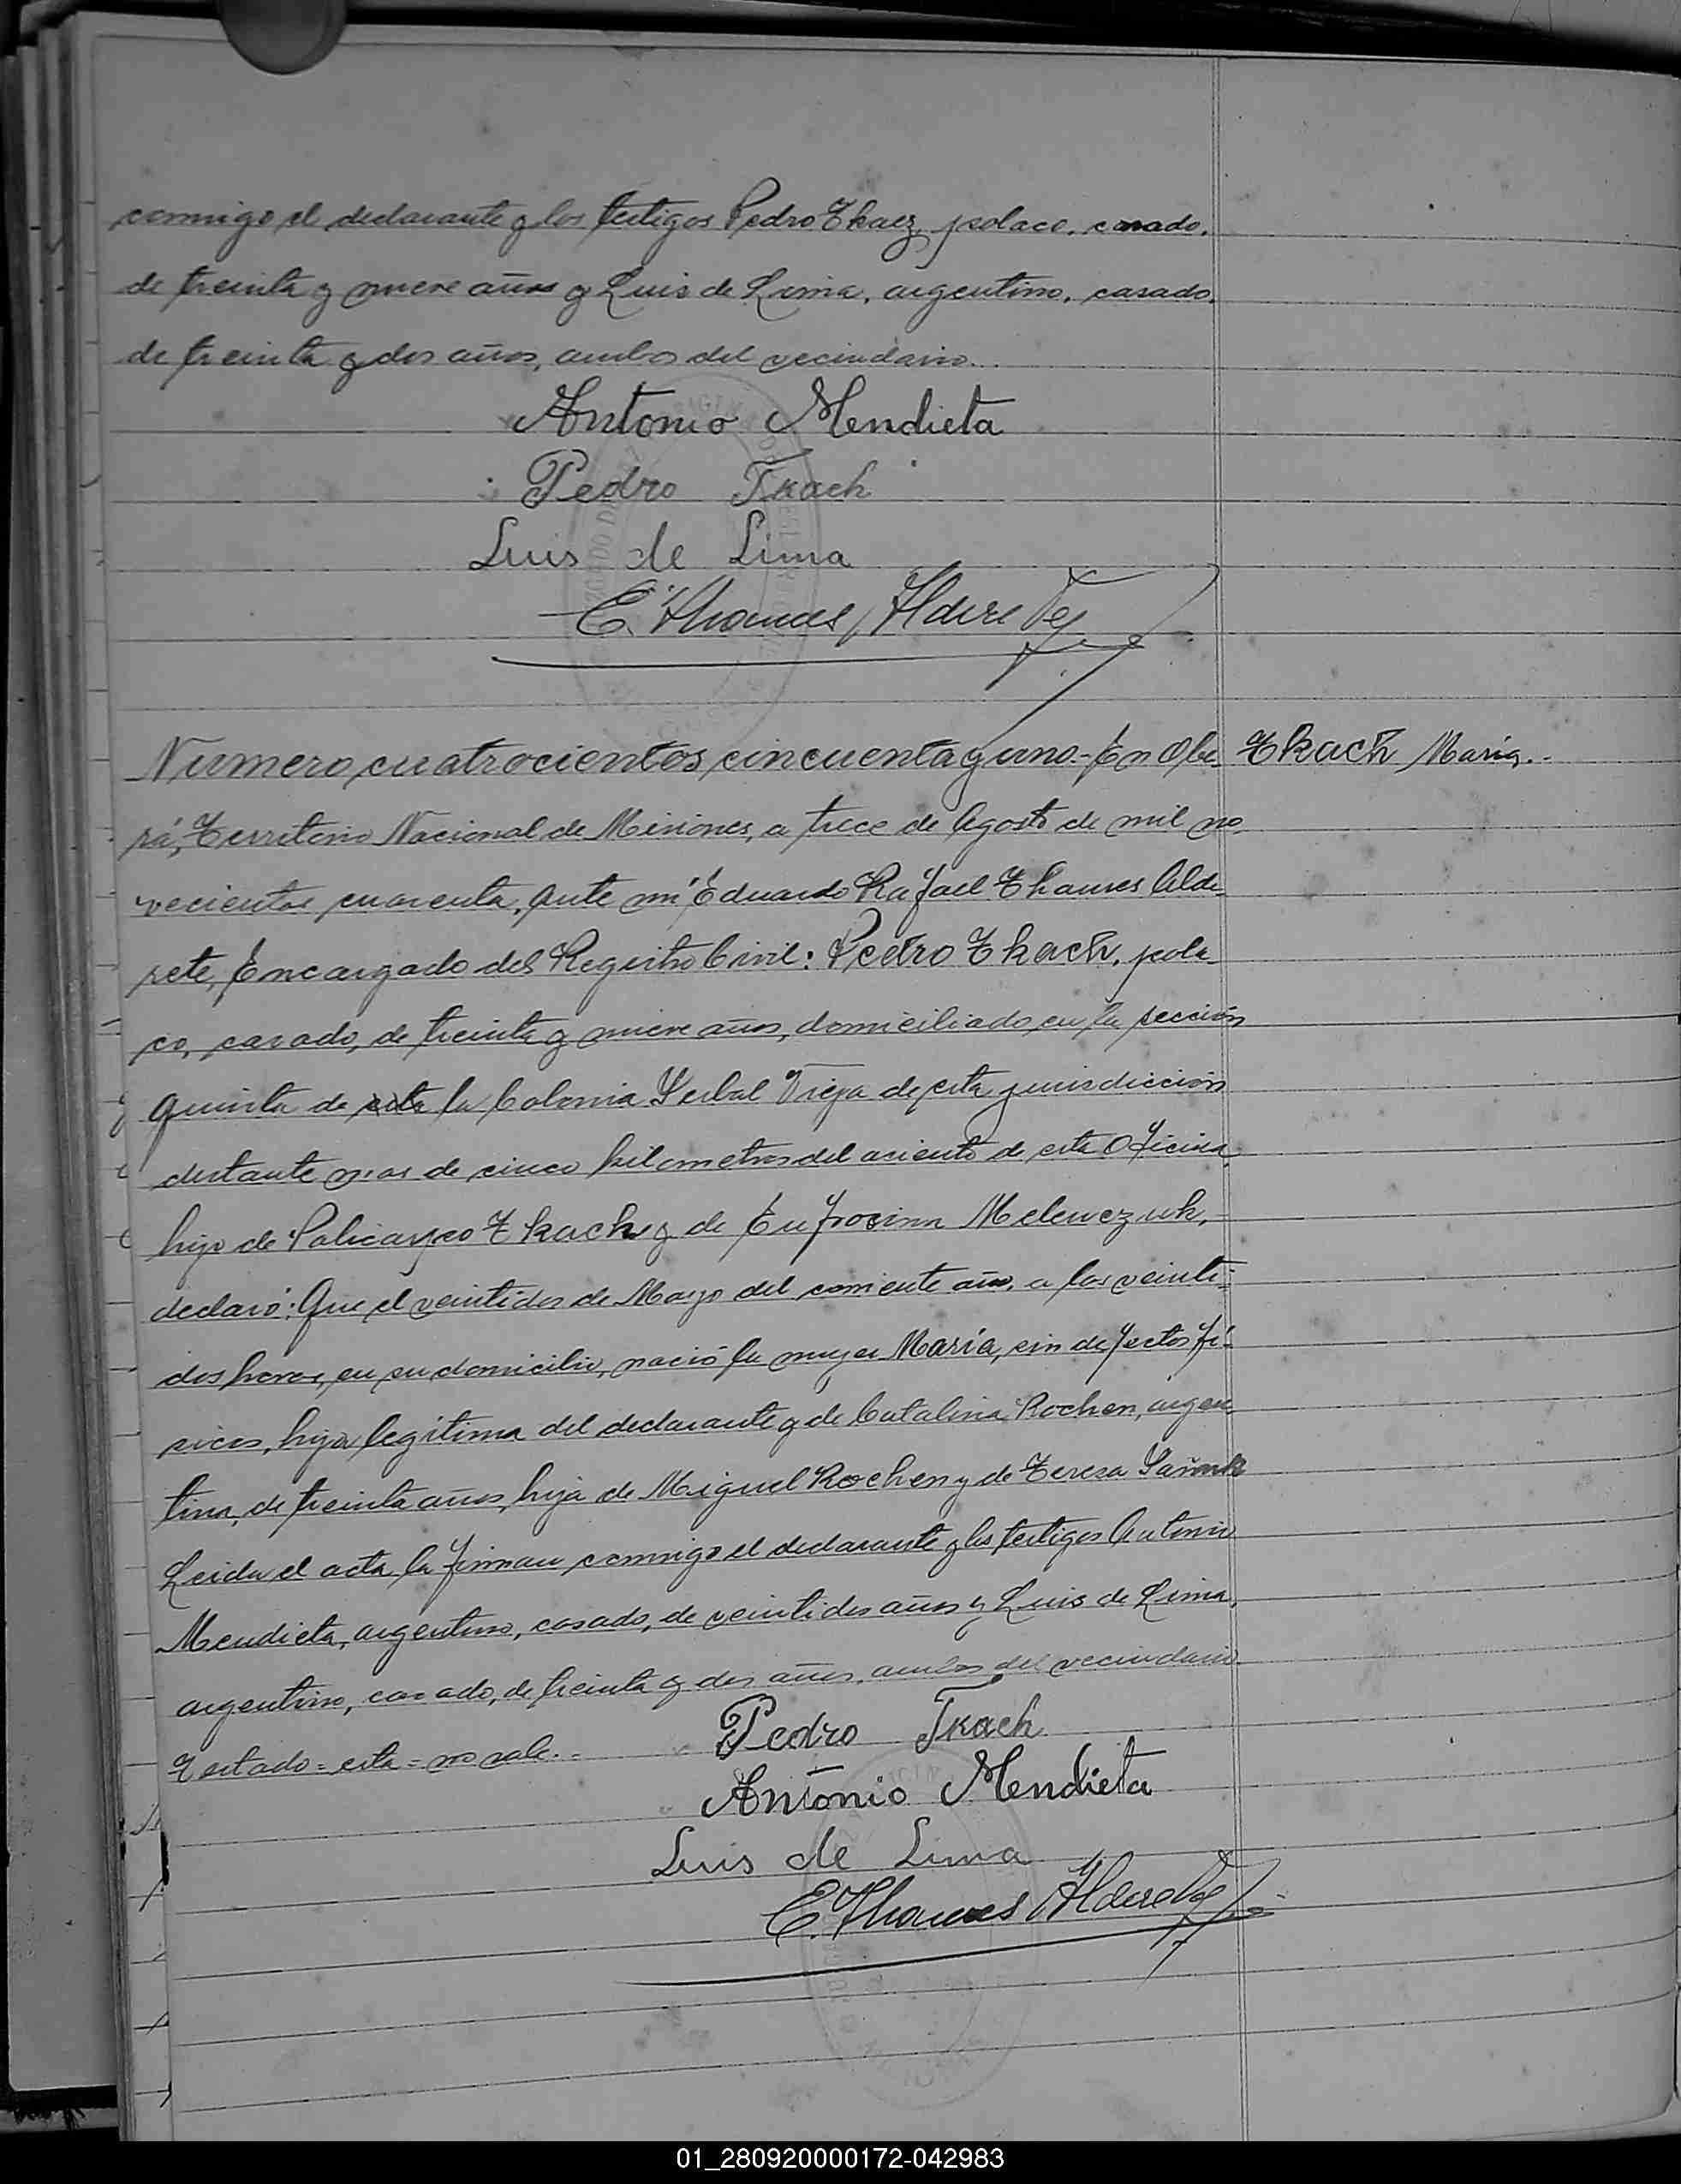 conmigo el declarante y los testigos Pedro Tkacz, polaco, casado,
de treinta y nueve años y Luis de Lima, argentino, casado,
de treinta y dos años, ambos del vecindario.
Antonio Mendieta
Pedro Tkach
Luis de Lima
E. Thames Alderete
Numero cuatrocientos cincuenta y uno.- En Obe- Tkach María.-
rá, Territorio Nacional de Misiones, a trece de Agosto de mil no-
vecientos cuarenta, ante mí Eduardo Rafael Thames Alde-
rete, Encargado del Registro Civil: Pedro Tkach, pola-
co, casado, de treinta y nueve años, domiciliado en la sección
quinta de esta la Colonia Yerbal Viejo de esta jurisdicción
distante mas de cinco kilometros del aciento de esta Oficina,
hijo de Policarpo Tkach y de Eufrosina Melewczuk,-
declaró: Que el veintidos de Mayo del corriente año, a las veinti-
dos horas, en su domicilio, nació la mujer María, sin defectos fí-
sicos, hija legítima del declarante y de Catalina Rochen, argen-
tina, de treinta años, hija de Miguel Rochen y de Teresa
Leida el acta la firman conmigo el declarante y los testigos Antonio
Mendieta, argentino, casado, de veintidos años y Luis de Lima,
argentino, casado, de treinta y dos años, ambos del vecindario
Testado = esta = no vale.-
Pedro Tkach
Antonio Mendieta
Luis de Lima
E. Thames Alderete
01_280920000172-042983